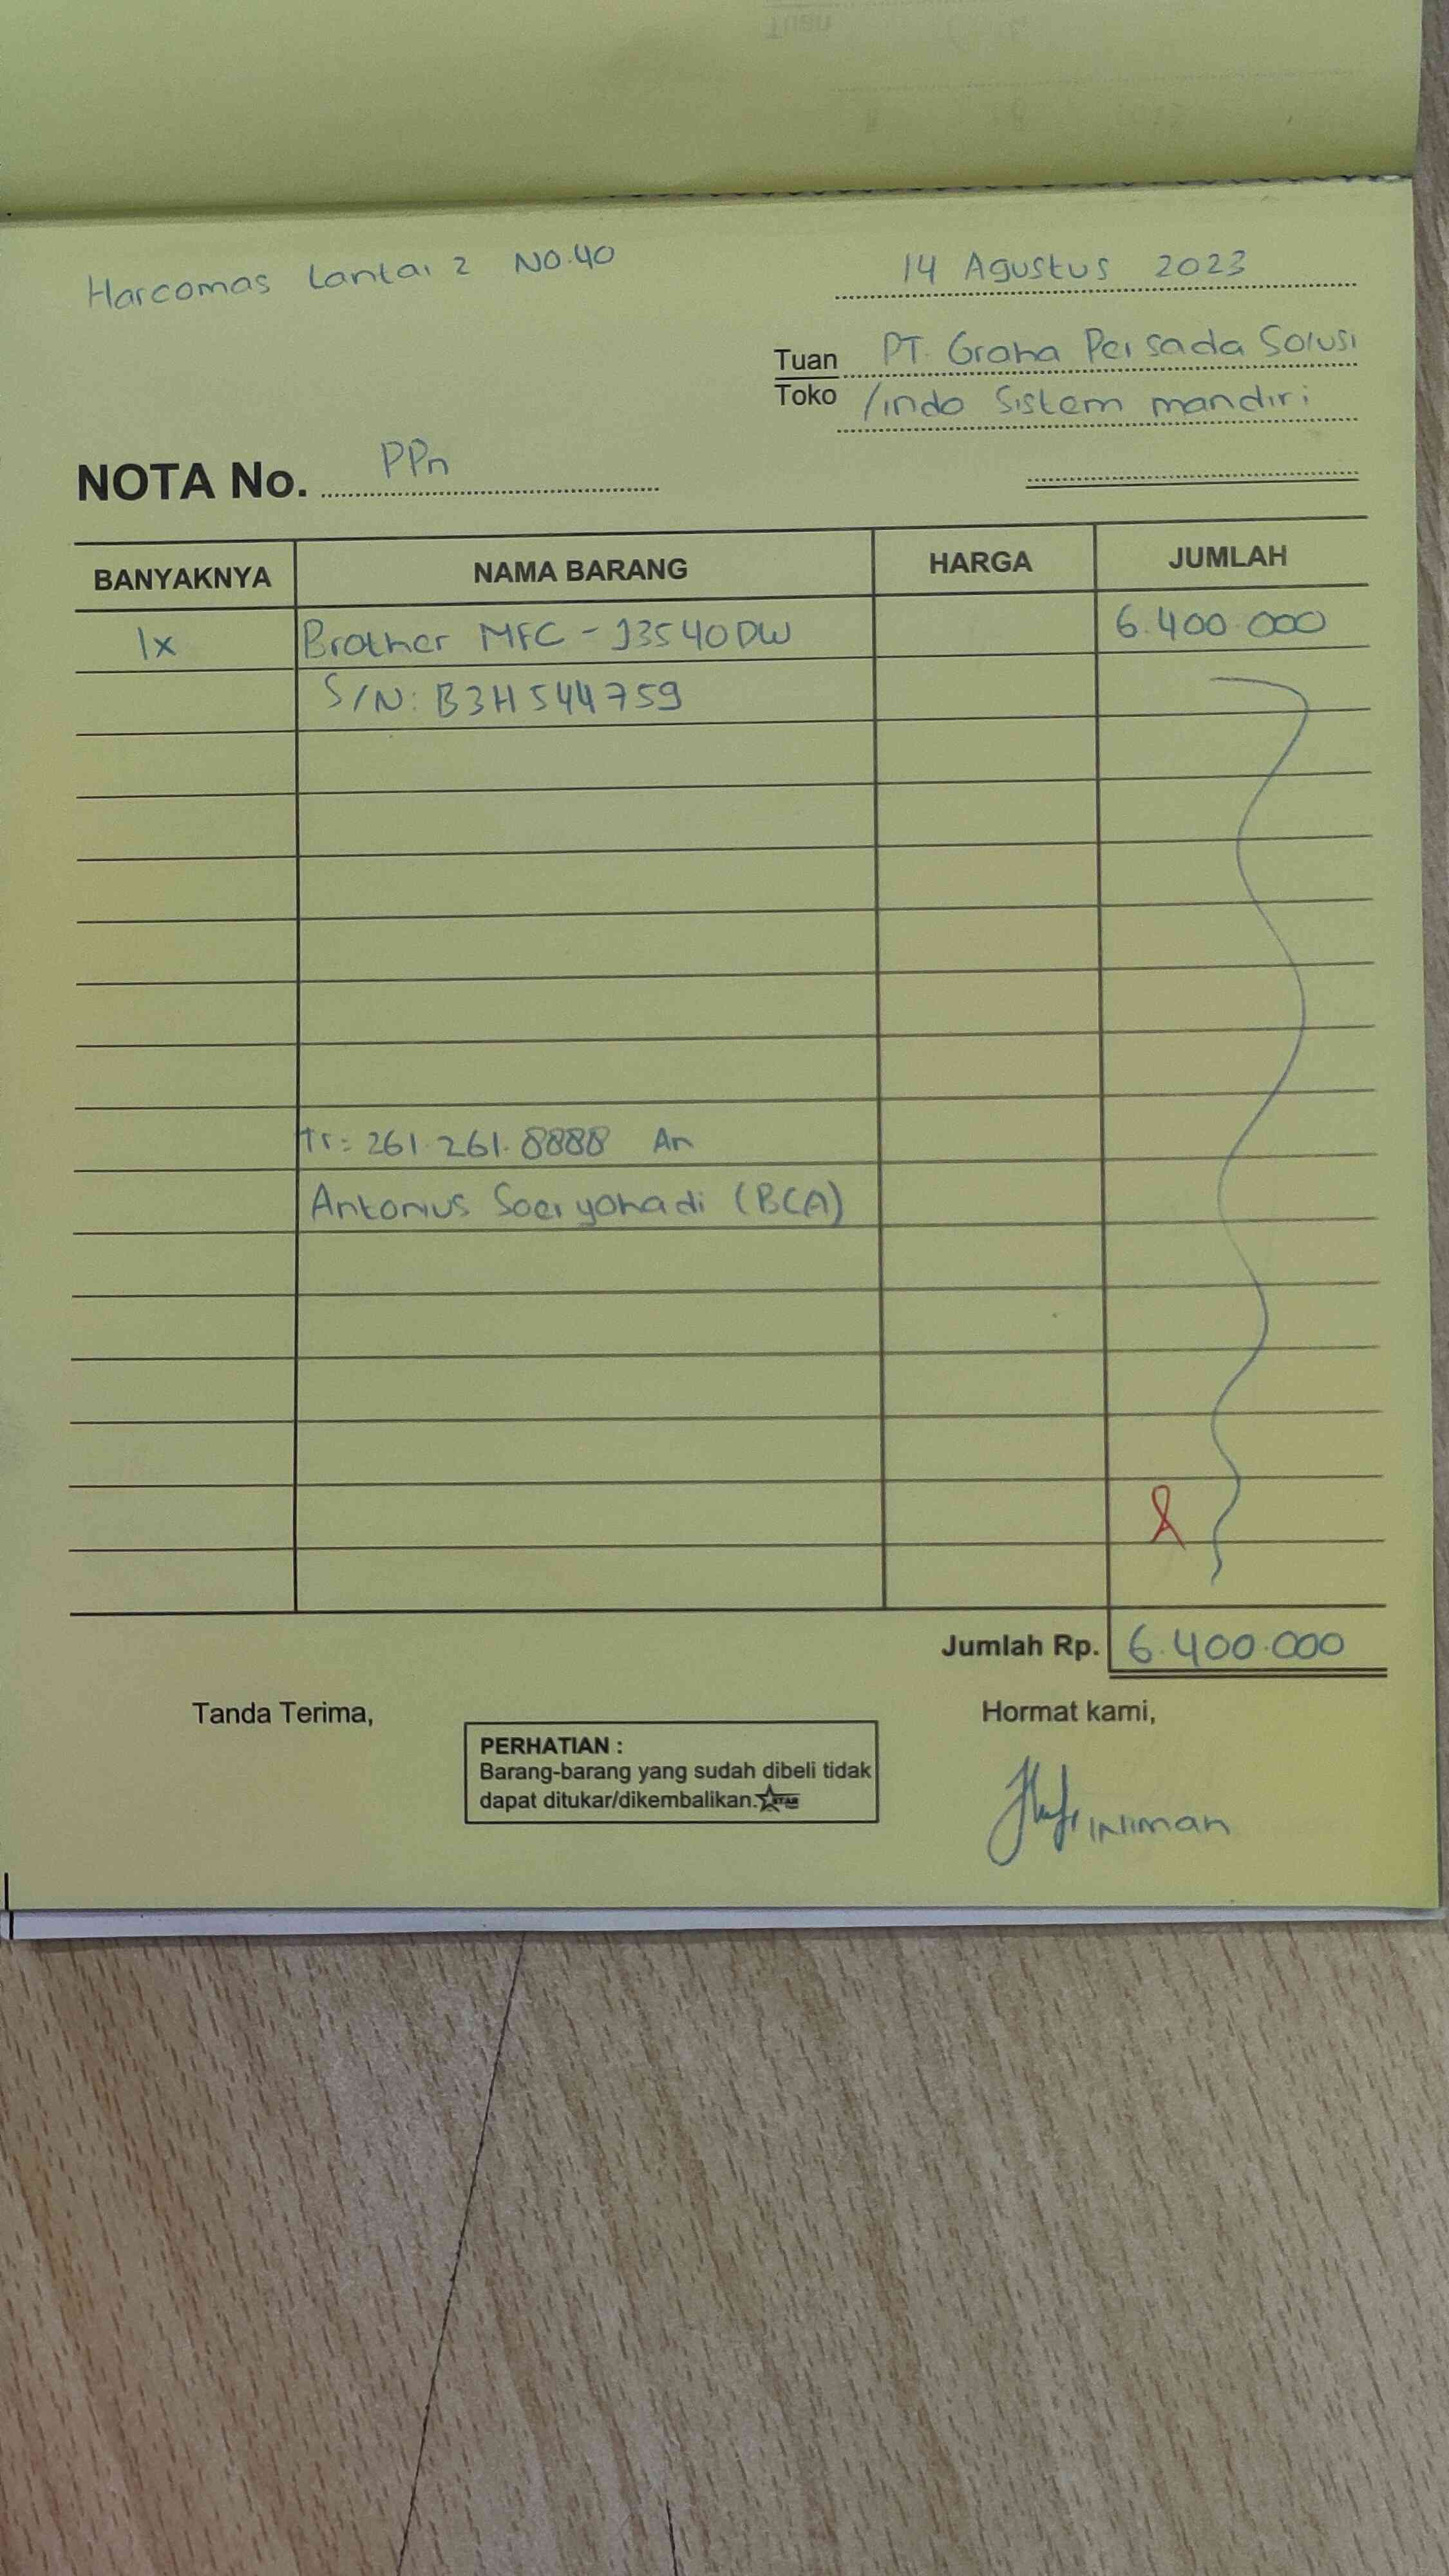 Harcomas Lantai 2 NO.40
14 Agustus 2023
Tuan PT. Graha Persada Solusi
Toko /indo Sistem mandiri
NOTA No. PPn
BANYAKNYA NAMA BARANG HARGA JUMLAH
1x Brother MFC-J3540DW 6.400.000
S/N: B3H544759
Tr: 261.261.8888 An
Antonius Soeryohadi (BCA)
Jumlah Rp. 6.400.000
Tanda Terima, Hormat kami,
PERHATIAN :
Barang-barang yang sudah dibeli tidak
dapat ditukar/dikembalikan. STAR